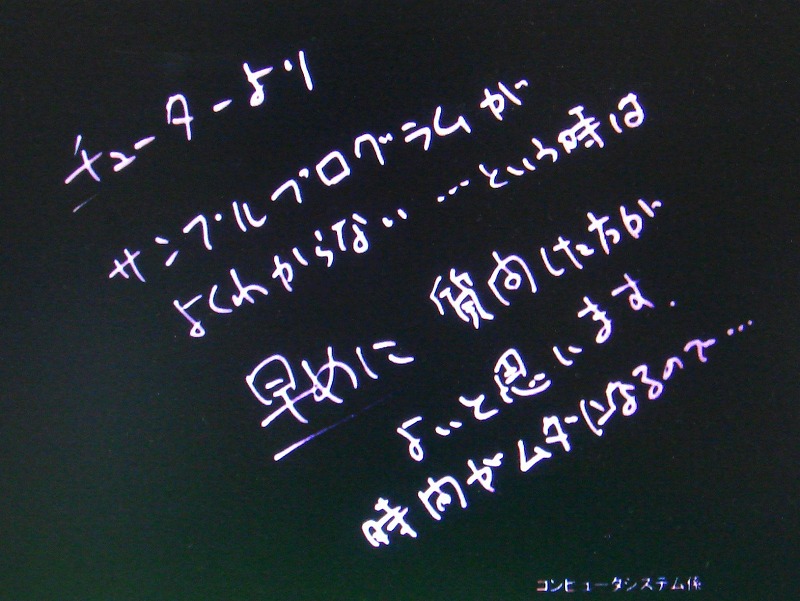 チューターより
サンプルプログラムが
よくわからない…という時は
早めに 質問した方が
よいと思います.
時間がムダになるので…
コンピュータシステム係